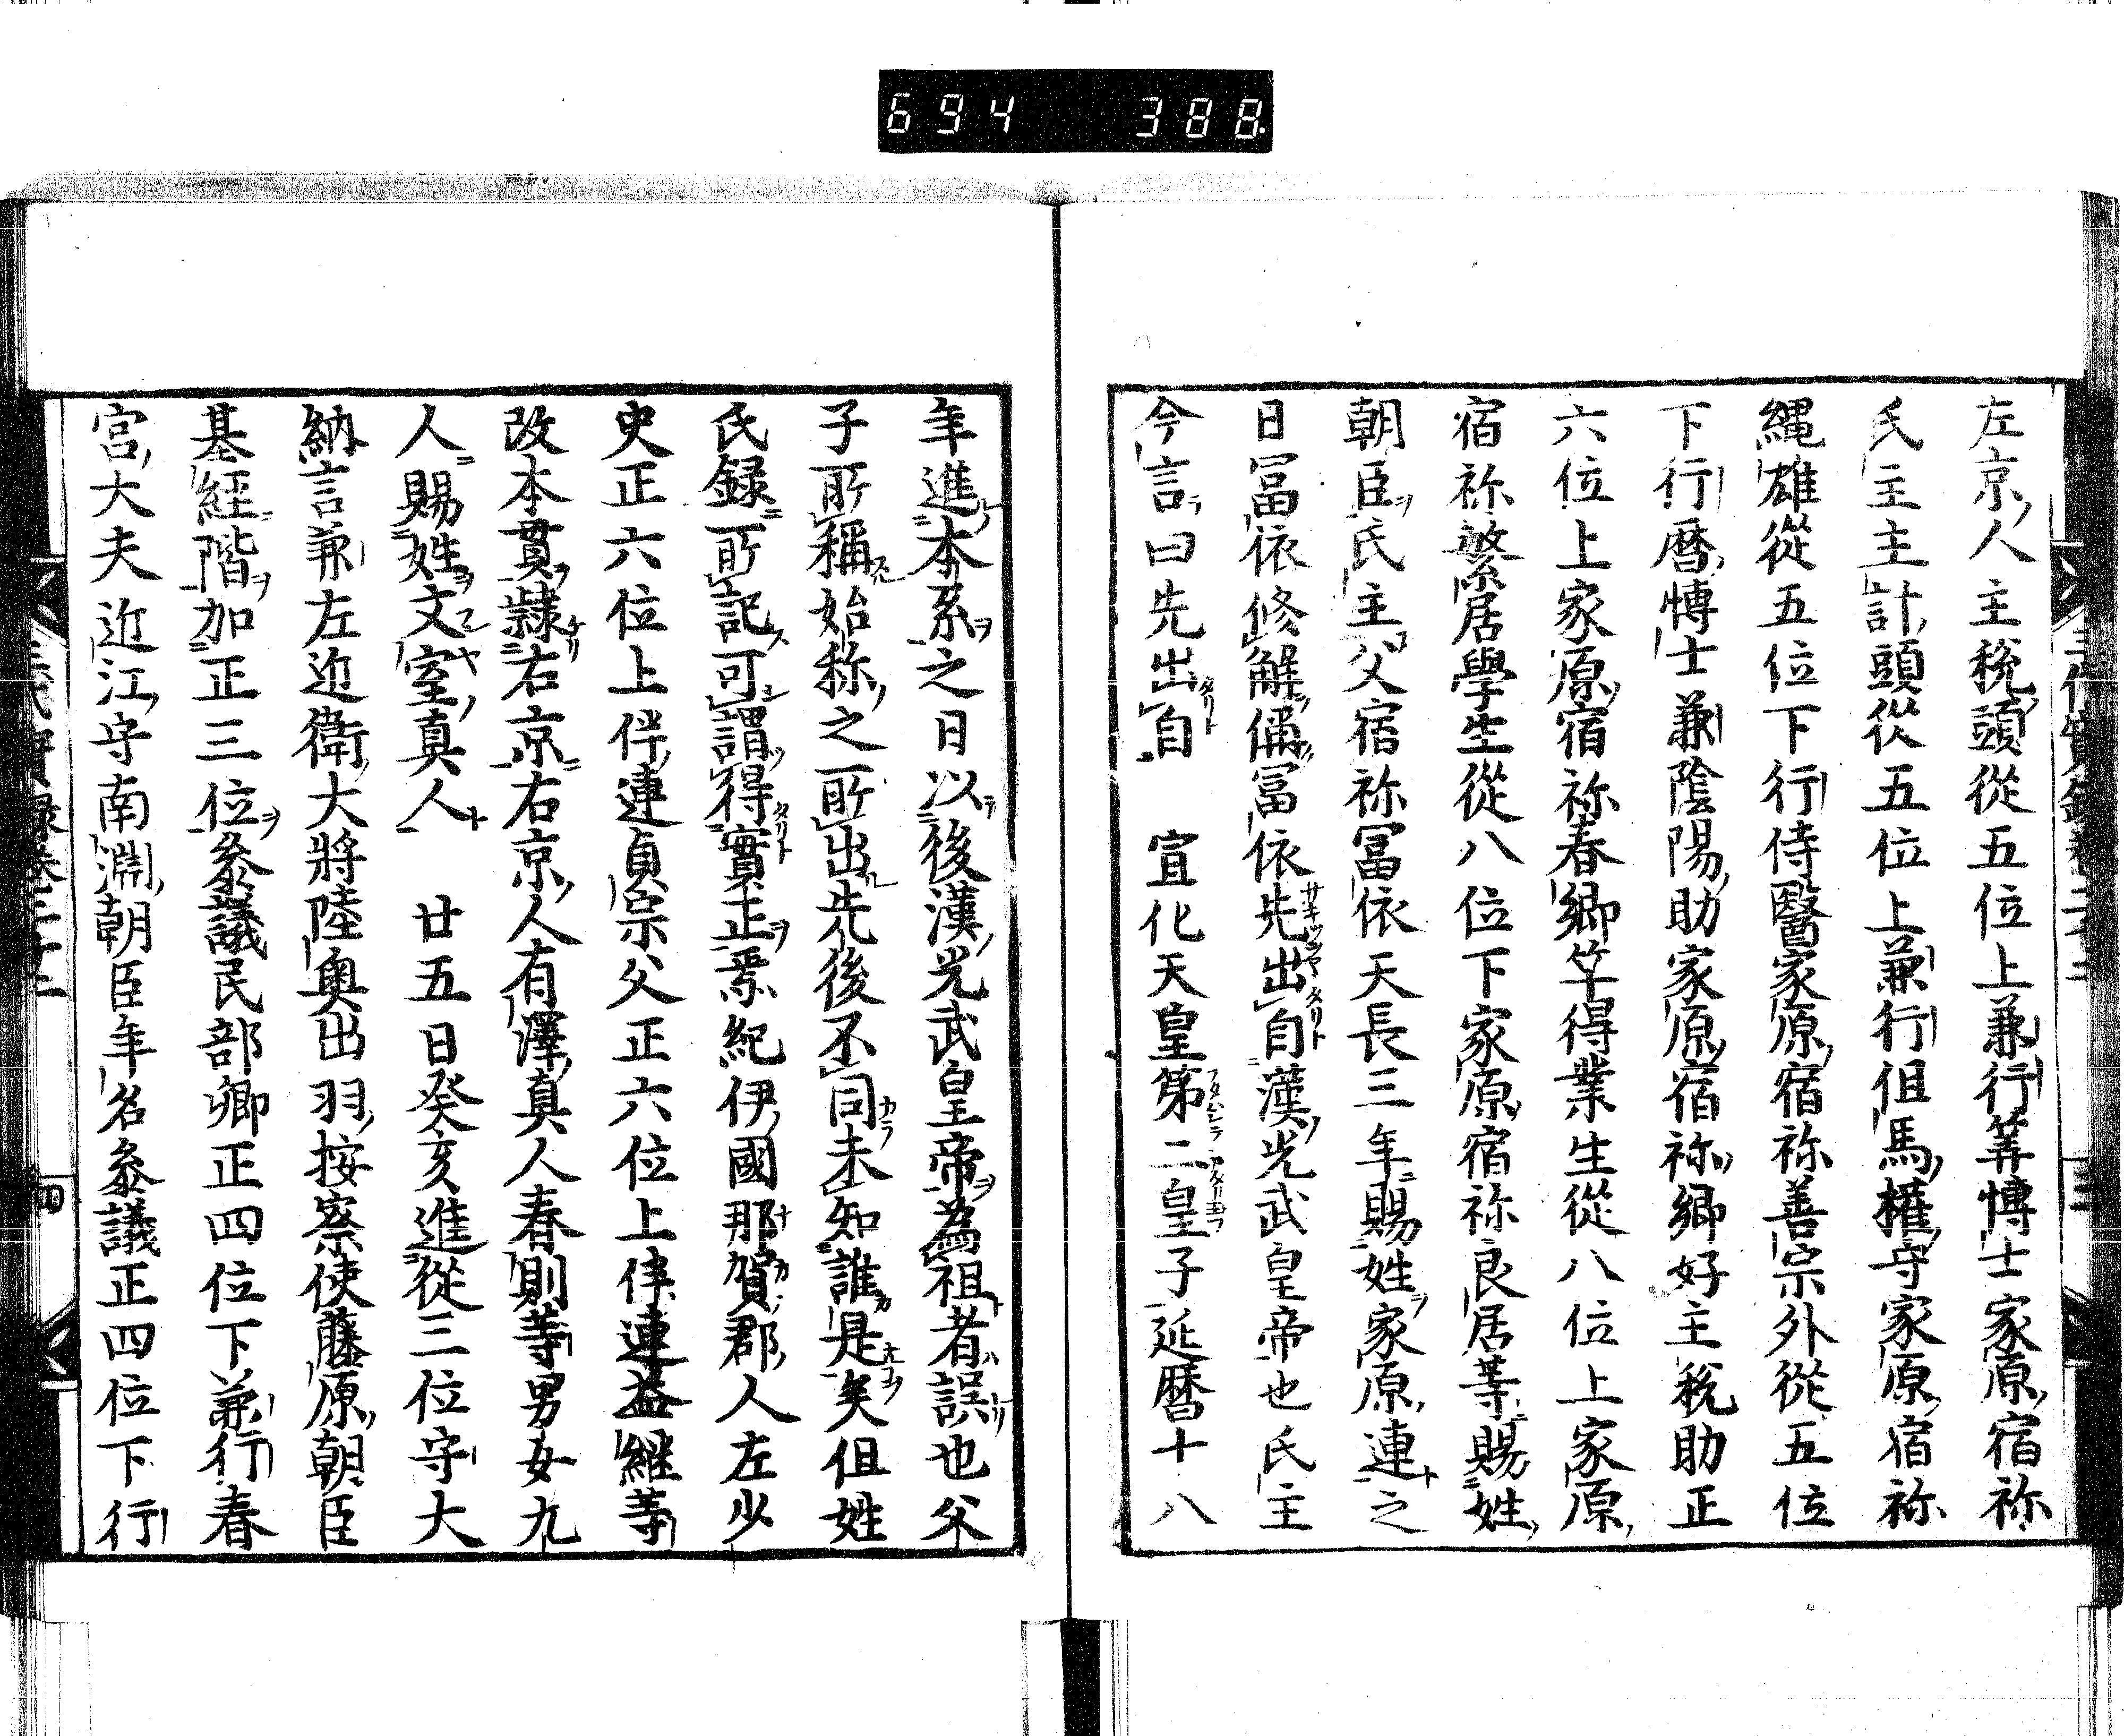 694 388
左京人主税頭從五位上兼行筭博士家原宿祢
氏主主計頭從五位上兼行伹馬權守家原宿祢
縄雄從五位下行侍醫家原宿祢善宗外從五位
下行暦博士兼陰陽助家原宿祢郷好主税助正
六位上家原宿祢春郷竿得業生從八位上家原
宿祢繁居學生從八位下家原宿祢良居等賜姓
朝臣氏主父宿祢冨依天長三年賜姓家原連之
日冨依修解偁冨依先出自漢光武皇帝也氏主
今言曰先出自　宣化天皇第二皇子延暦十八
年進本系之日以後漢光武皇帝為祖者誤也父
子所稱始称之所出先後不同未知誰是矣伹姓
氏録所記可謂得實正焉紀伊國那賀郡人左少
史正六位上伴連貞宗父正六位上伴連益継等
改本貫隷右京右京人有澤真人春則等男女九
人賜姓文室真人　廿五日癸亥進從三位守大
納言兼左近衛大將陸奥出羽按察使藤原朝臣
基經階加正三位叅議民部卿正四位下兼行春
宮大夫近江守南淵朝臣年名叅議正四位下行